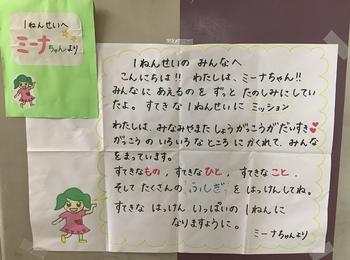 1ねんせいへ
ミーナちゃんより
1ねんせいの みんなへ
こんにちは!! わたしは、ミーナちゃん!!
みんなに あえるのを ずっと たのしみにしてい
たよ。すてきな1ねんせいに ミッション
わたしは、みなみやまた しょうがっこうがだいすき♥
がっこうの いろいろなところに かくれて、みんな
をまっています。
すてきなもの、すてきなひと、すてきなこと、
そして たくさんの ふしぎ を はっけんしてね。
すてきな はっけん いっぱいの 1ねんに
なりますように。
ミーナちゃんより